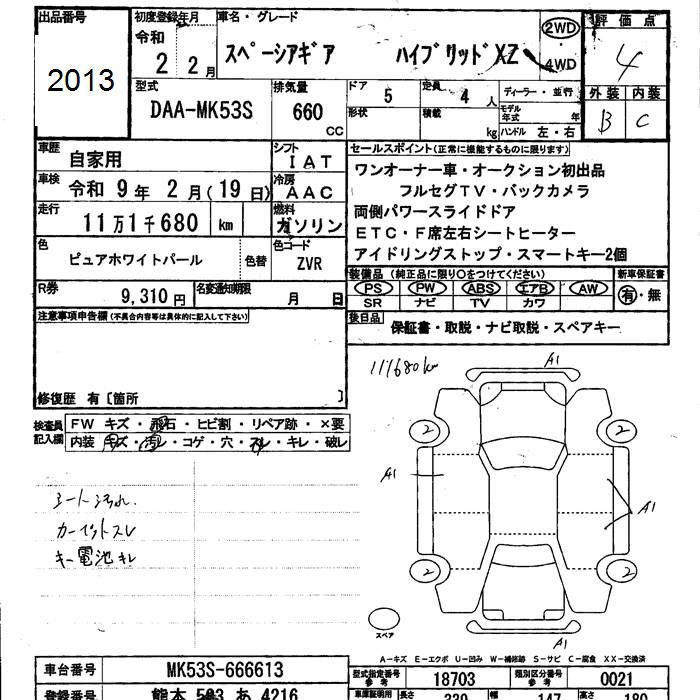 出品番号 2013
初度登録年月 令和 2年 2月
車名・グレード スペーシアギア ハイブリッドXZ
2WD・4WD
評価点 4
外装 内装
B C
型式 DAA-MK53S
排気量 660 CC
ドア 5 定員 4 人
形状 積載 kg
ディーラー・並行
モデル年式 年
ハンドル 左・右
車歴 自家用
シフト IAT
車検 令和 9年 2月(19日)
冷房 AAC
走行 11万1千680 km
燃料 ガソリン
色 ピュアホワイトパール 色替
色コード ZVR
R券 9,310円
名変通知期限 月 日
セールスポイント(正常に機能するものに限ります)
ワンオーナー車・オークション初出品
フルセグTV・バックカメラ
両側パワースライドドア
ETC・F席左右シートヒーター
アイドリングストップ・スマートキー2個
装備品(純正品に限り○をつけてください) 新車保証書
PS PW ABS エアB AW 有・無
SR ナビ TV カワ
後日品 保証書・取説・ナビ取説・スペアキー
注意事項申告欄(不具合内容等は具体的に記入して下さい)
修復歴 有〔箇所 〕
検査員記入欄
FW キズ・飛石・ヒビ割・リペア跡・×要
内装 キズ・汚レ・コゲ・穴・スレ・キレ・破レ
シート汚れ.
カーペットスレ
キー電池キレ
111680km
A1
2 2
A1 A1
2 2
スペア
A1
A-キズ E-エクボ U-凹み W-補修跡 S-サビ C-腐食 XX-交換済
車台番号 MK53S-666613
型式指定番号 参考 18703
類別区分番号 参考 0021
登録番号 熊本 583 あ 4216
車庫証明用 参考 長さ 339 幅 147 高さ 180